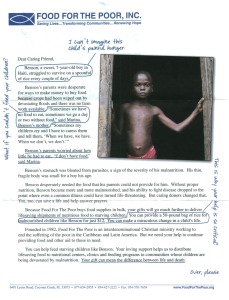 FOOD FOR THE POOR, INC.
Saving Lives...Transforming Communities...Renewing Hope
I can't imagine this
child's painful hunger
Dear Caring Friend,
Benson, a sweet, 7-year-old boy in
Haiti, struggled to survive on a spoonful
of rice every couple of days.
Benson's parents were desperate
for ways to make money to buy food
because crops had been wiped out by
devastating floods and there was no farm
work available. "Sometimes we have
no food to eat, sometimes we go a day
or two without food," said Marina,
Benson's mother. "Sometimes my
children cry and I have to carry them
and tell them, 'When we have, we have.
When we don't, we don't.'"
Benson's parents worried about how
little he had to eat. "I don't have food,"
said Marina.
Benson's stomach was bloated from parasites, a sign of the severity of his malnutrition. His thin,
fragile body was small for a boy his age.
Benson desperately needed the food that his parents could not provide for him. Without proper
nutrition, Benson became more and more malnourished, and his ability to fight disease dropped to the
point where even a common illness could have turned life-threatening. But caring donors changed that.
You, too, can save a life and help answer prayers.
Because Food For The Poor buys food supplies in bulk, your gifts will go much farther to deliver
lifesaving shipments of nutritious food to starving children.
Founded in 1982, Food For The Poor is an interdenominational Christian ministry working to
end the suffering of the poor in the Caribbean and Latin America. But we need your help to continue
providing food and other aid to those in need.
You can help feed starving children like Benson. Your loving support helps us to distribute
lifesaving food to nutritional centers, clinics and feeding programs in communities whose children are
being devastated by malnutrition. Your gift can mean the difference between life and death.
over, please
www.FoodForThePoor.org